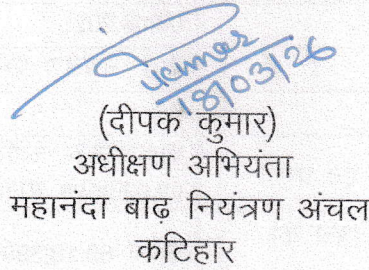 18/03/26
(दीपक कुमार)
अधीक्षण अभियंता
महानंदा बाढ़ नियंत्रण अंचल
कटिहार